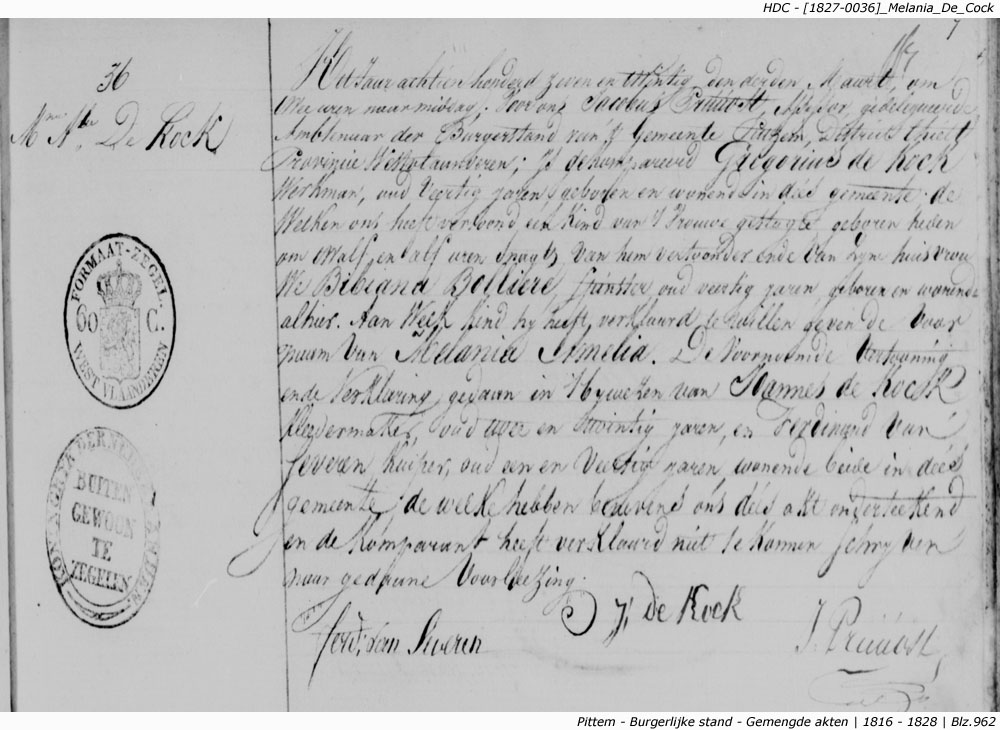 HDC - [1827-0036]_Melania_De_Cock
7
36
De Kock
Het Jaer achtien honderd zeven en twintig den derden Maart, om
twee uren naar middag; Voor ons Jacobus Pruvost
Ambtenaar der Burgerstand van 't Gemeente Districts Thielt
Provincie Westvlaanderen; Is gekompareerd Gregorius de Kock
Werkman, oud Veertig jaren, geboren en wonende in deés gemeente de
Welken ons heeft vertoond een kind van 't Vrouwe geslagte geboren heden
om half en half uren van hem vertoonder ende van zyne huisvrou
We Bibiana Bolliere, oud veertig jaren, geboren en wonende
alhier. Aan Welk kind hy heeft verklaard te willen geven de Voor
naam van Melania Amelia. De Voornoemde Vertooning
ende Verklaring gedaan in Hywezen van Joannes de Kock
kledermaker, oud twee en twintig jaren, en Ferdinand Van
Severen kuiper, oud een en Veertig jaren wonende beide in deés
gemeente de welke hebben benevens ons deés akt onderteekend
en de Komparant heeft verklaard niet te konnen schryven
naar gedaane Voorleezing.
J. De Kock
Ferd. van Severen
J. Pruvost
FORMAAT-ZEGEL
60 C.
WEST VLAANDEREN
BUITEN
GEWOON
TE
ZEGELEN
Pittem - Burgerlijke stand - Gemengde akten | 1816 - 1828 | Blz.962